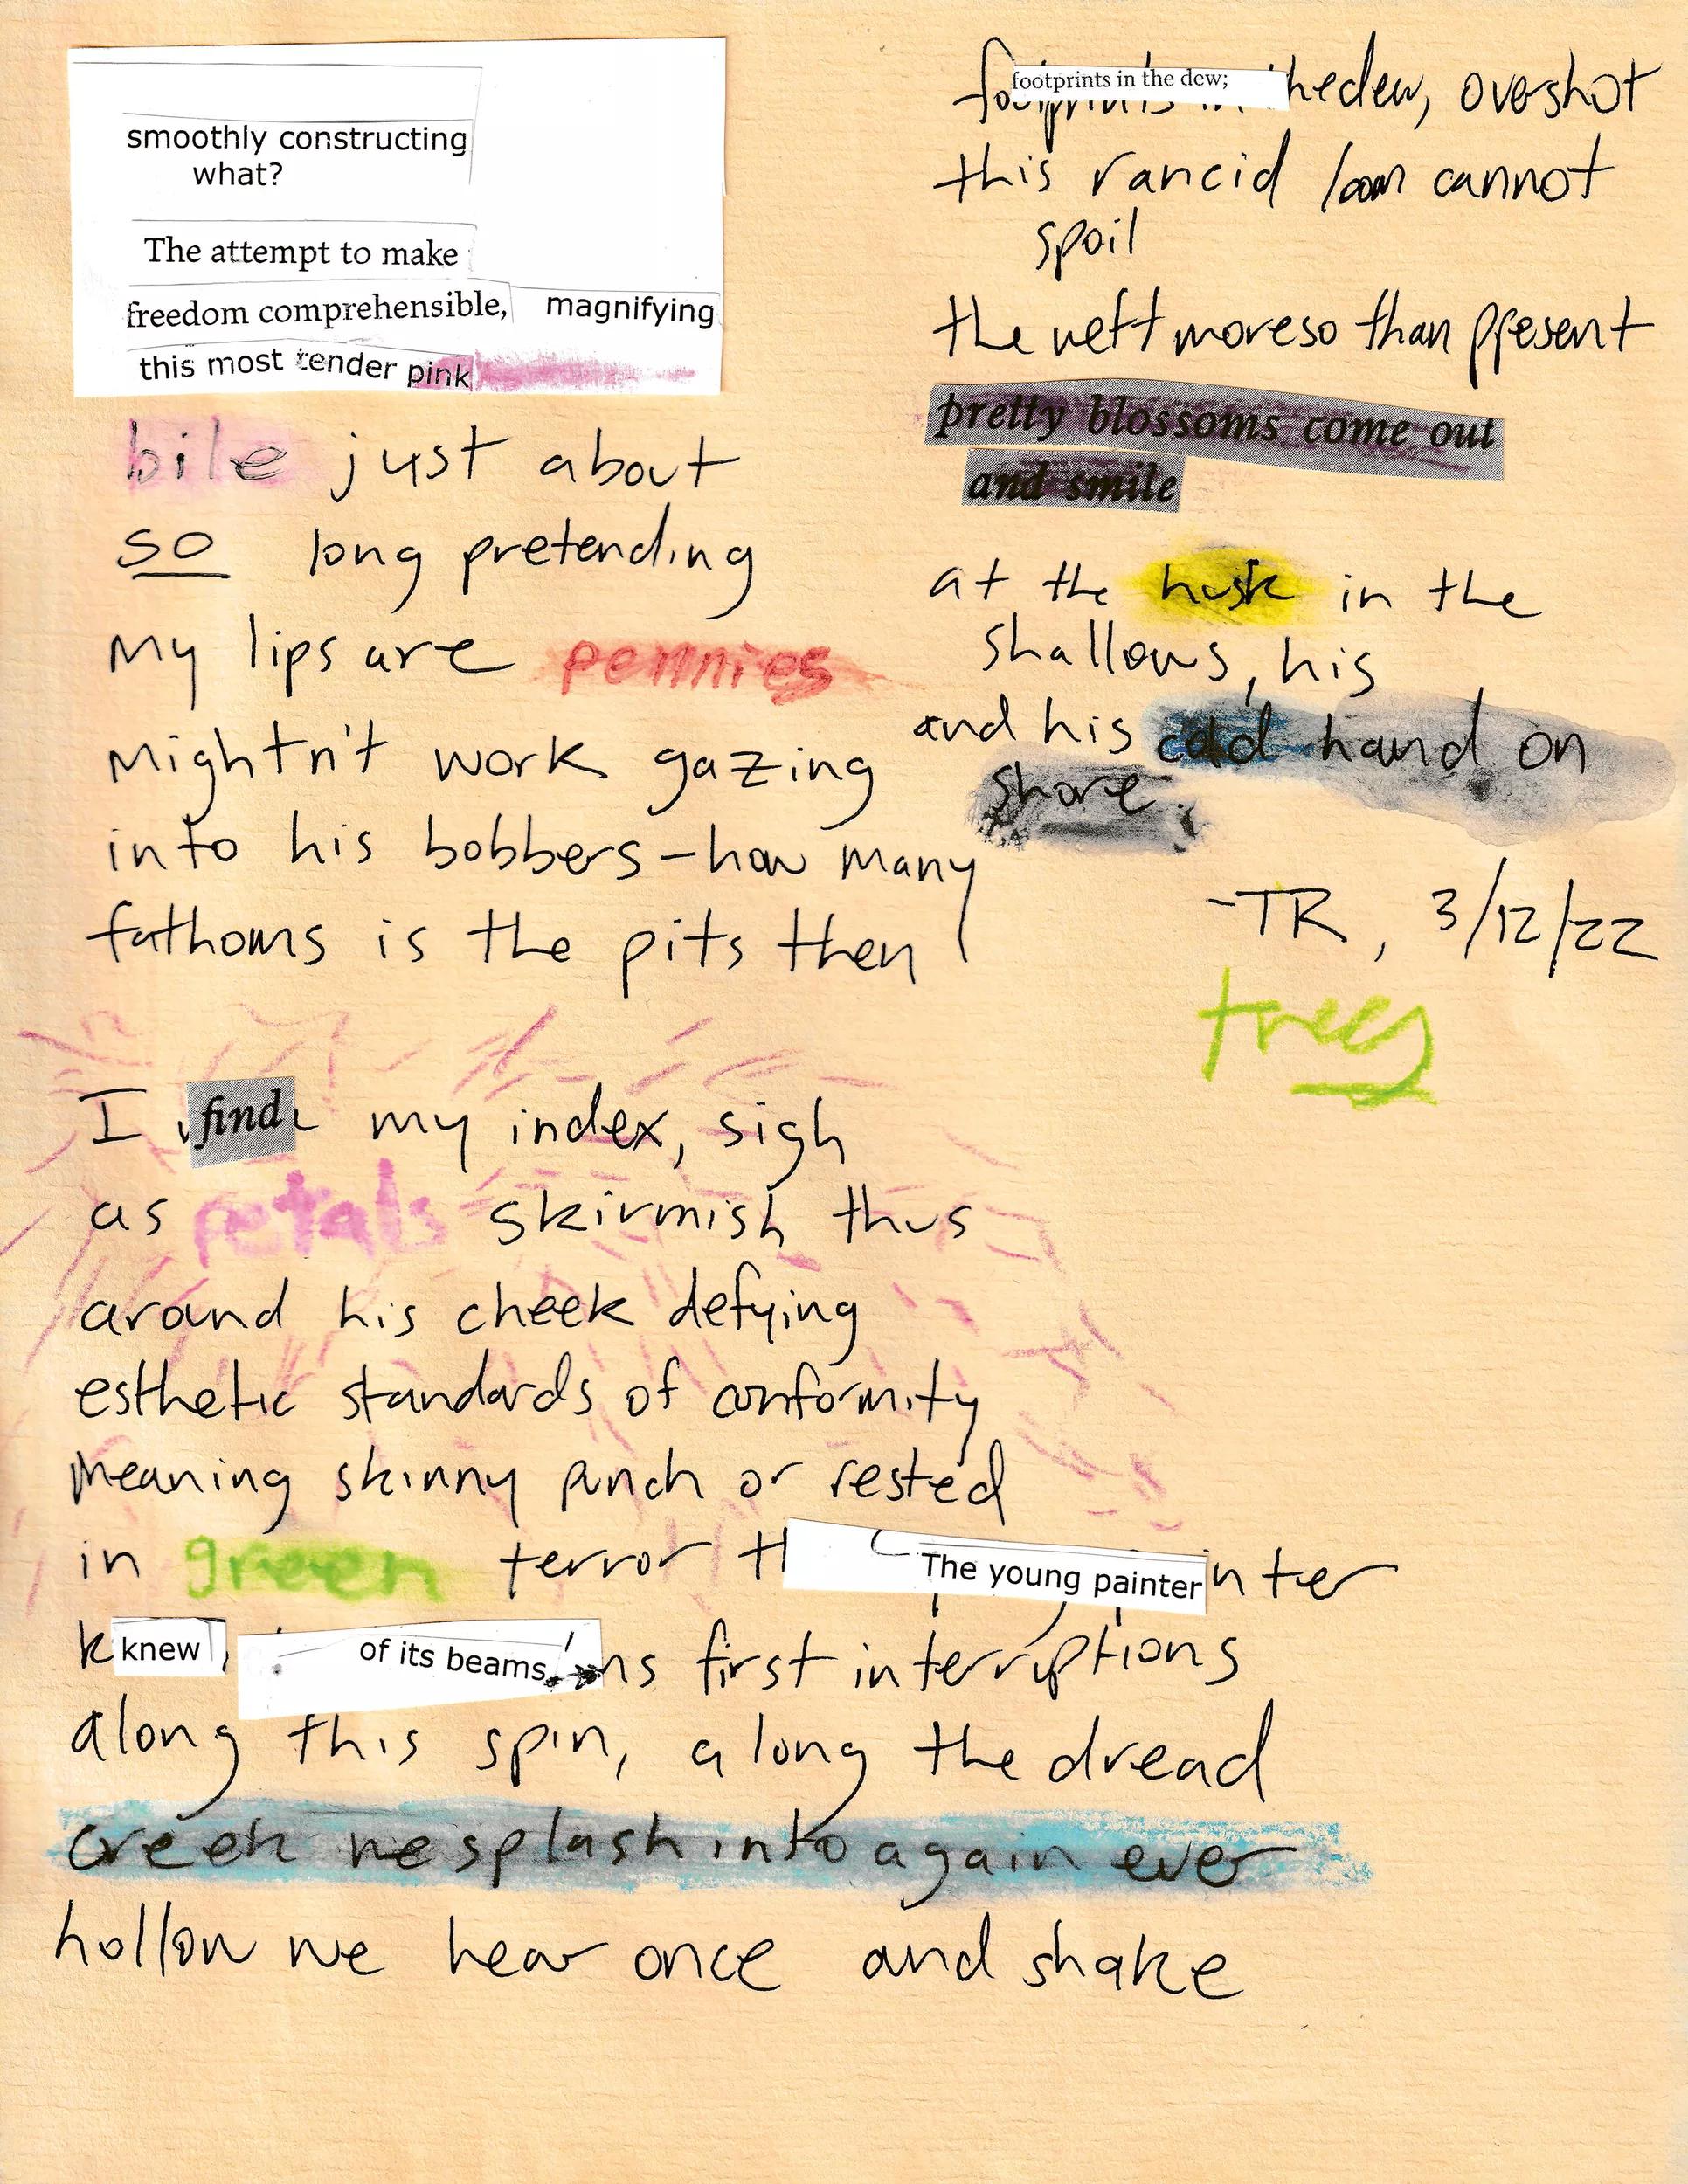 smoothly constructing
what?
The attempt to make
freedom comprehensible, magnifying
this most tender pink
bile just about
so long pretending
my lips are pennies
mightn't work gazing
into his bobbers – how many
fathoms is the pits then
I find my index, sigh
as petals skirmish thus
around his cheek defying
esthetic standards of conformity
meaning skinny punch or rested
in green terror The young painter
knew, of its beams, first interruptions
along this spin, along the dread
creek we splash into again ever
hollow we hear once and shake
footprints in the dew; the dew, overshot
this rancid loam cannot
spoil
the nett moreso than present
pretty blossoms come out
and smile
at the husk in the
shallows, his
and his cold hand on
shore.
-TR, 3/12/22
trees